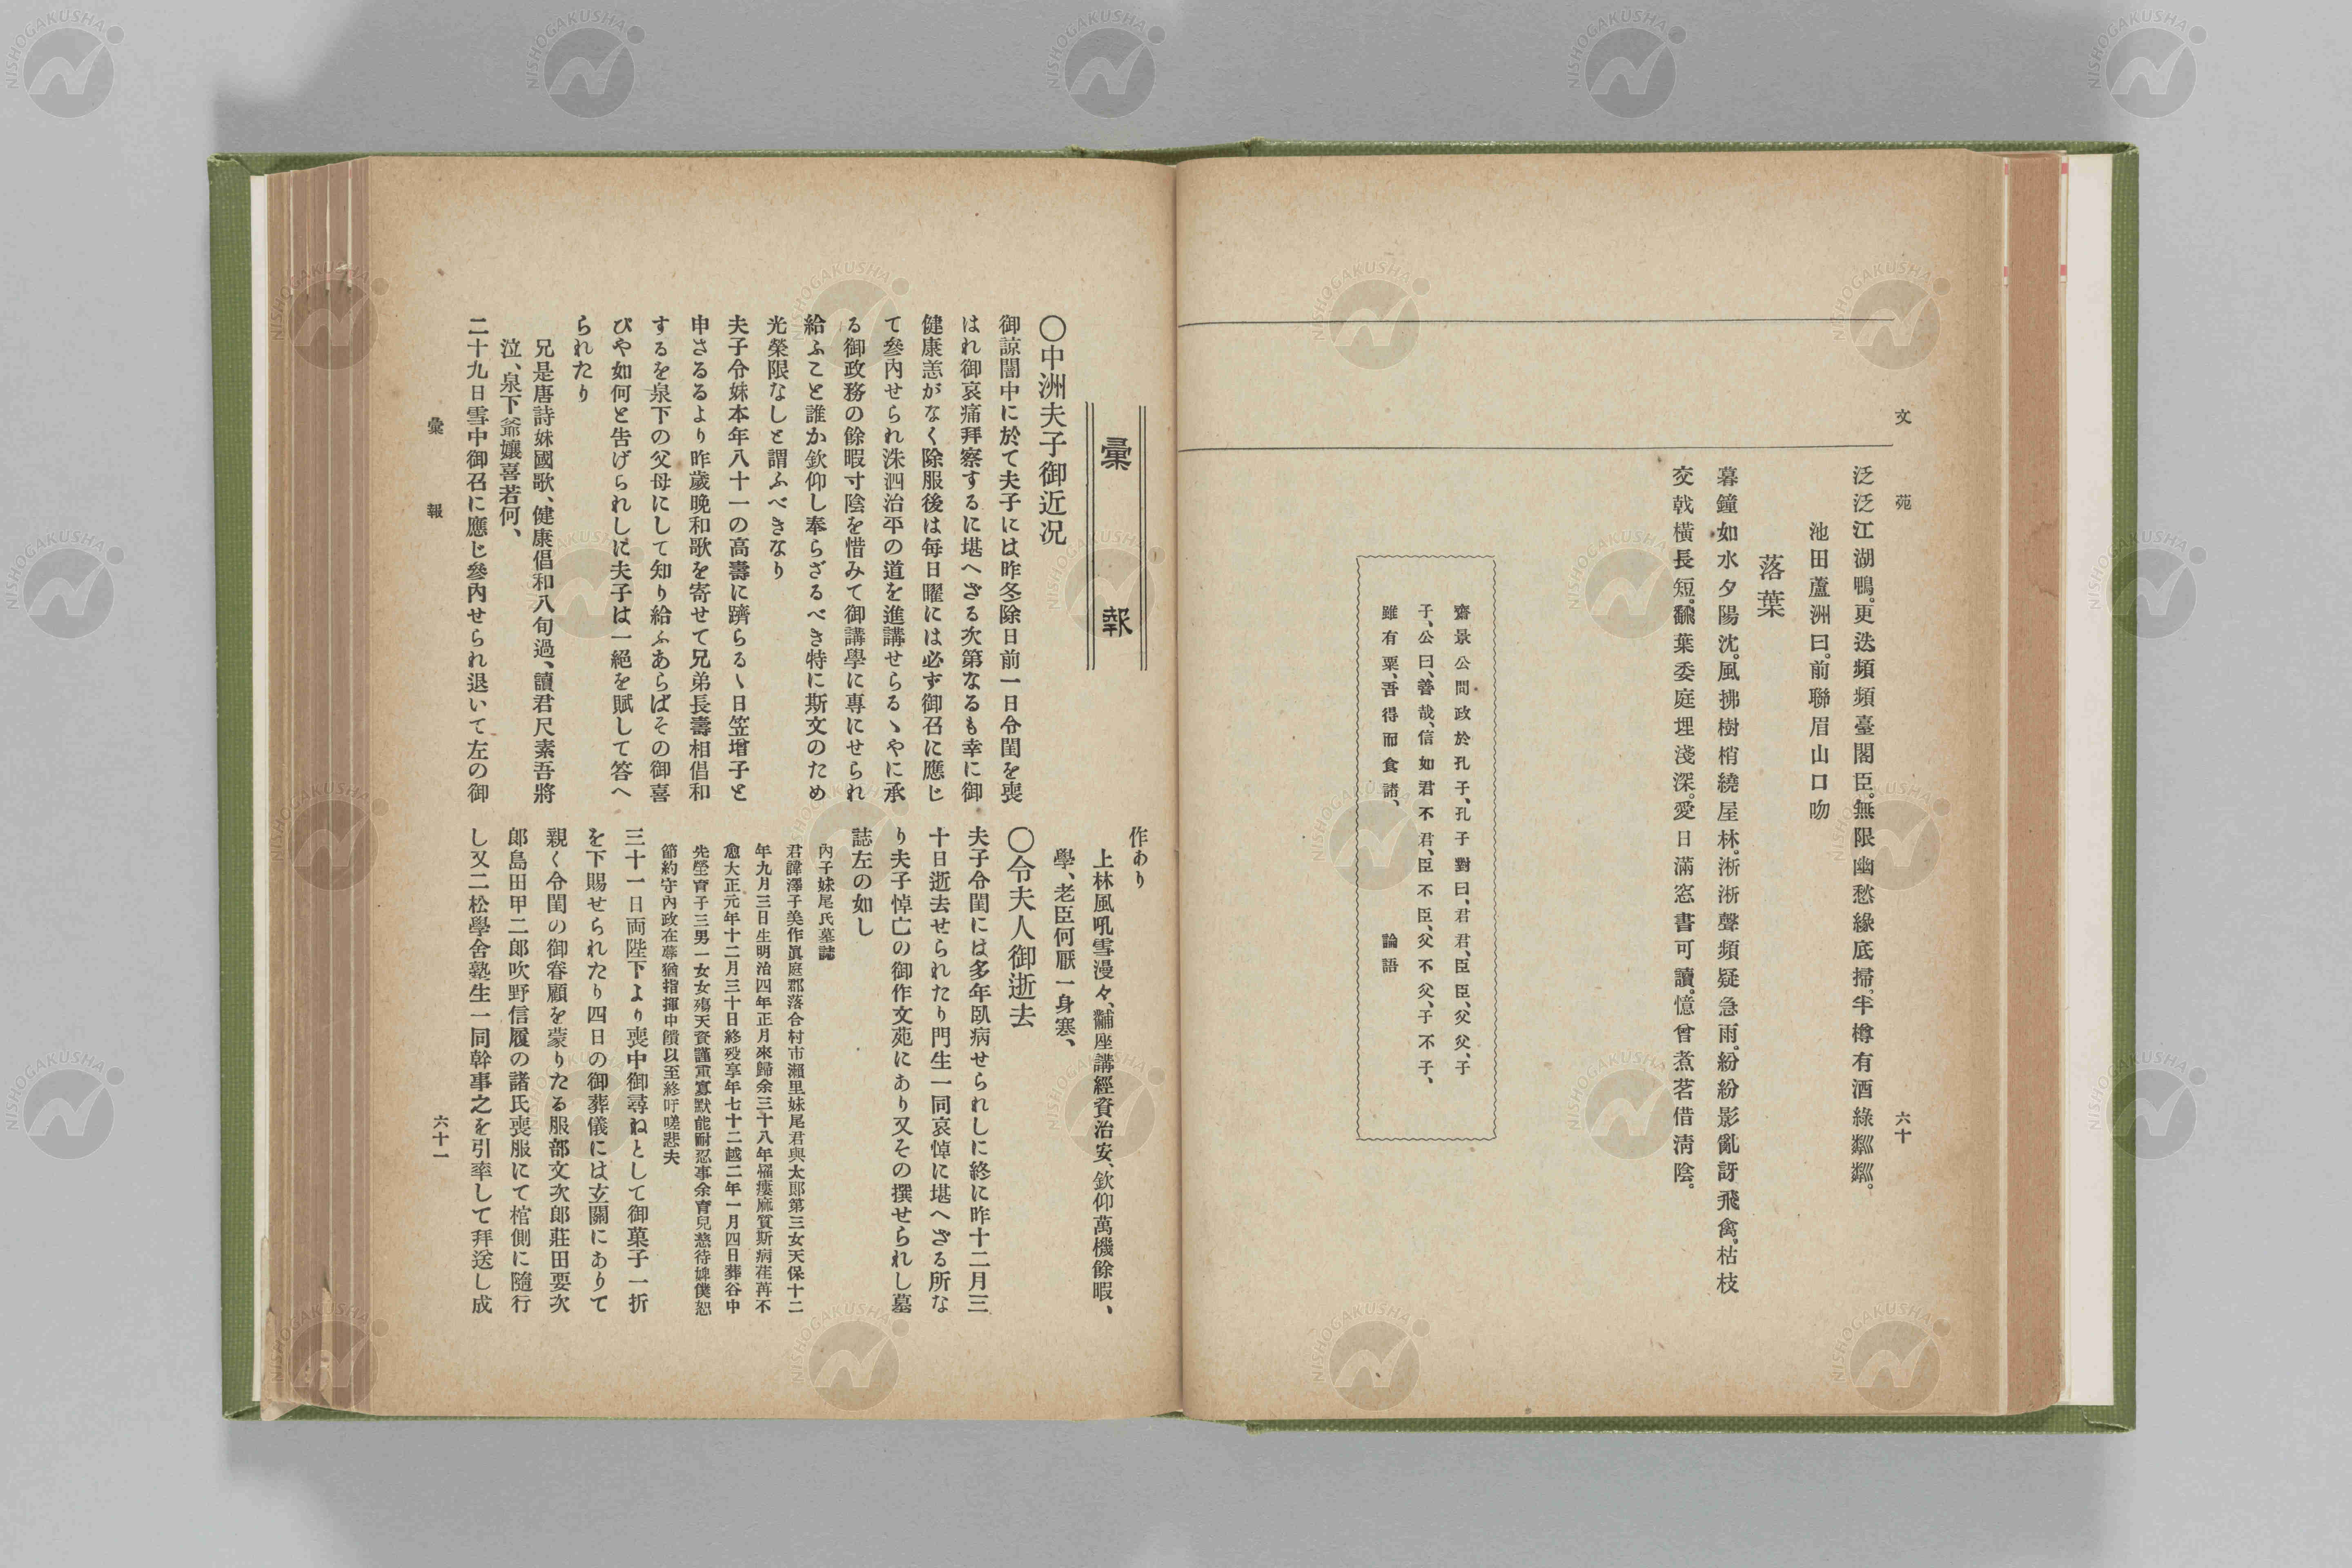 文苑
六十
泛泛江湖鴨。更迭頻頻臺閣臣。無限幽愁緣底掃。半樽有酒綠粼粼。
池田蘆洲曰。前聯眉山口吻
落葉
暮鐘如水夕陽沈。風拂樹梢繞屋林。淅淅聲頻疑急雨。紛紛影亂訝飛禽。枯枝
交戟橫長短。飜葉委庭埋淺深。愛日滿窓書可讀。憶曾煮茗借淸陰。
齋景公問政於孔子、孔子對曰、君君、臣臣、父父、子
子、公曰、善哉、信如君不君、臣不臣、父不父、子不子、
雖有粟、吾得而食諸、　論語
彙報
〇中洲夫子御近況
御諒闇中に於て夫子には昨冬除日前一日令閨を喪
はれ御哀痛拜察するに堪へざる次第なるも幸に御
健康恙がなく除服後は每日曜には必ず御召に應じ
て參內せられ洙泗治平の道を進講せらるゝやに承
る御政務の餘暇寸陰を惜みて御講學に專にせられ
給ふこと誰か欽仰し奉らざるべき特に斯文のため
光榮限なしと謂ふべきなり
夫子令妹本年八十一の高壽に躋らるゝ日笠增子と
申さるるより昨歲晚和歌を寄せて兄弟長壽相倡和
するを泉下の父母にして知り給ふあらばその御喜
びや如何と吿げられしに夫子は一絕を賦して答へ
られたり
兄是唐詩妹國歌、健康倡和八旬過、讀君尺素吾將
泣、泉下爺孃喜若何、
二十九日雪中御召に應じ參內せられ退いて左の御
作あり
上林風吼雪漫々、黼座講經資治安、欽仰萬機餘暇、
學、老臣何厭一身寒、
〇令夫人御逝去
夫子令閨には多年臥病せられしに終に昨十二月三
十日逝去せられたり門生一同哀悼に堪へざる所な
り夫子悼亡の御作文苑にあり又その撰せられし墓
誌左の如し
內子妹尾氏墓誌
君諱澤子美作眞庭郡落合村市瀨里妹尾君與太郞第三女天保十二
年九月三日生明治四年正月來歸余三十八年罹瘻麻質斯病荏苒不
愈大正元年十二月三十日終歿享年七十二越二年一月四日葬谷中
先塋育子三男一女女殤天資謹重寡默能耐忍事余育兒慈待婢僕恕
節約守內政在蓐猶指揮中饋以至終吁嗟悲夫
三十一日両陛下より喪中御尋ねとして御菓子一折
を下賜せられたり四日の御葬儀には玄關にありて
親く令閨の御眷顧を蒙りたる服部文次郞莊田要次
郞島田甲二郞吹野信履の諸氏喪服にて棺側に隨行
し又二松學舍塾生一同幹事之を引率して拜送し成
彙報
六十一
NISHOGAKUSHA